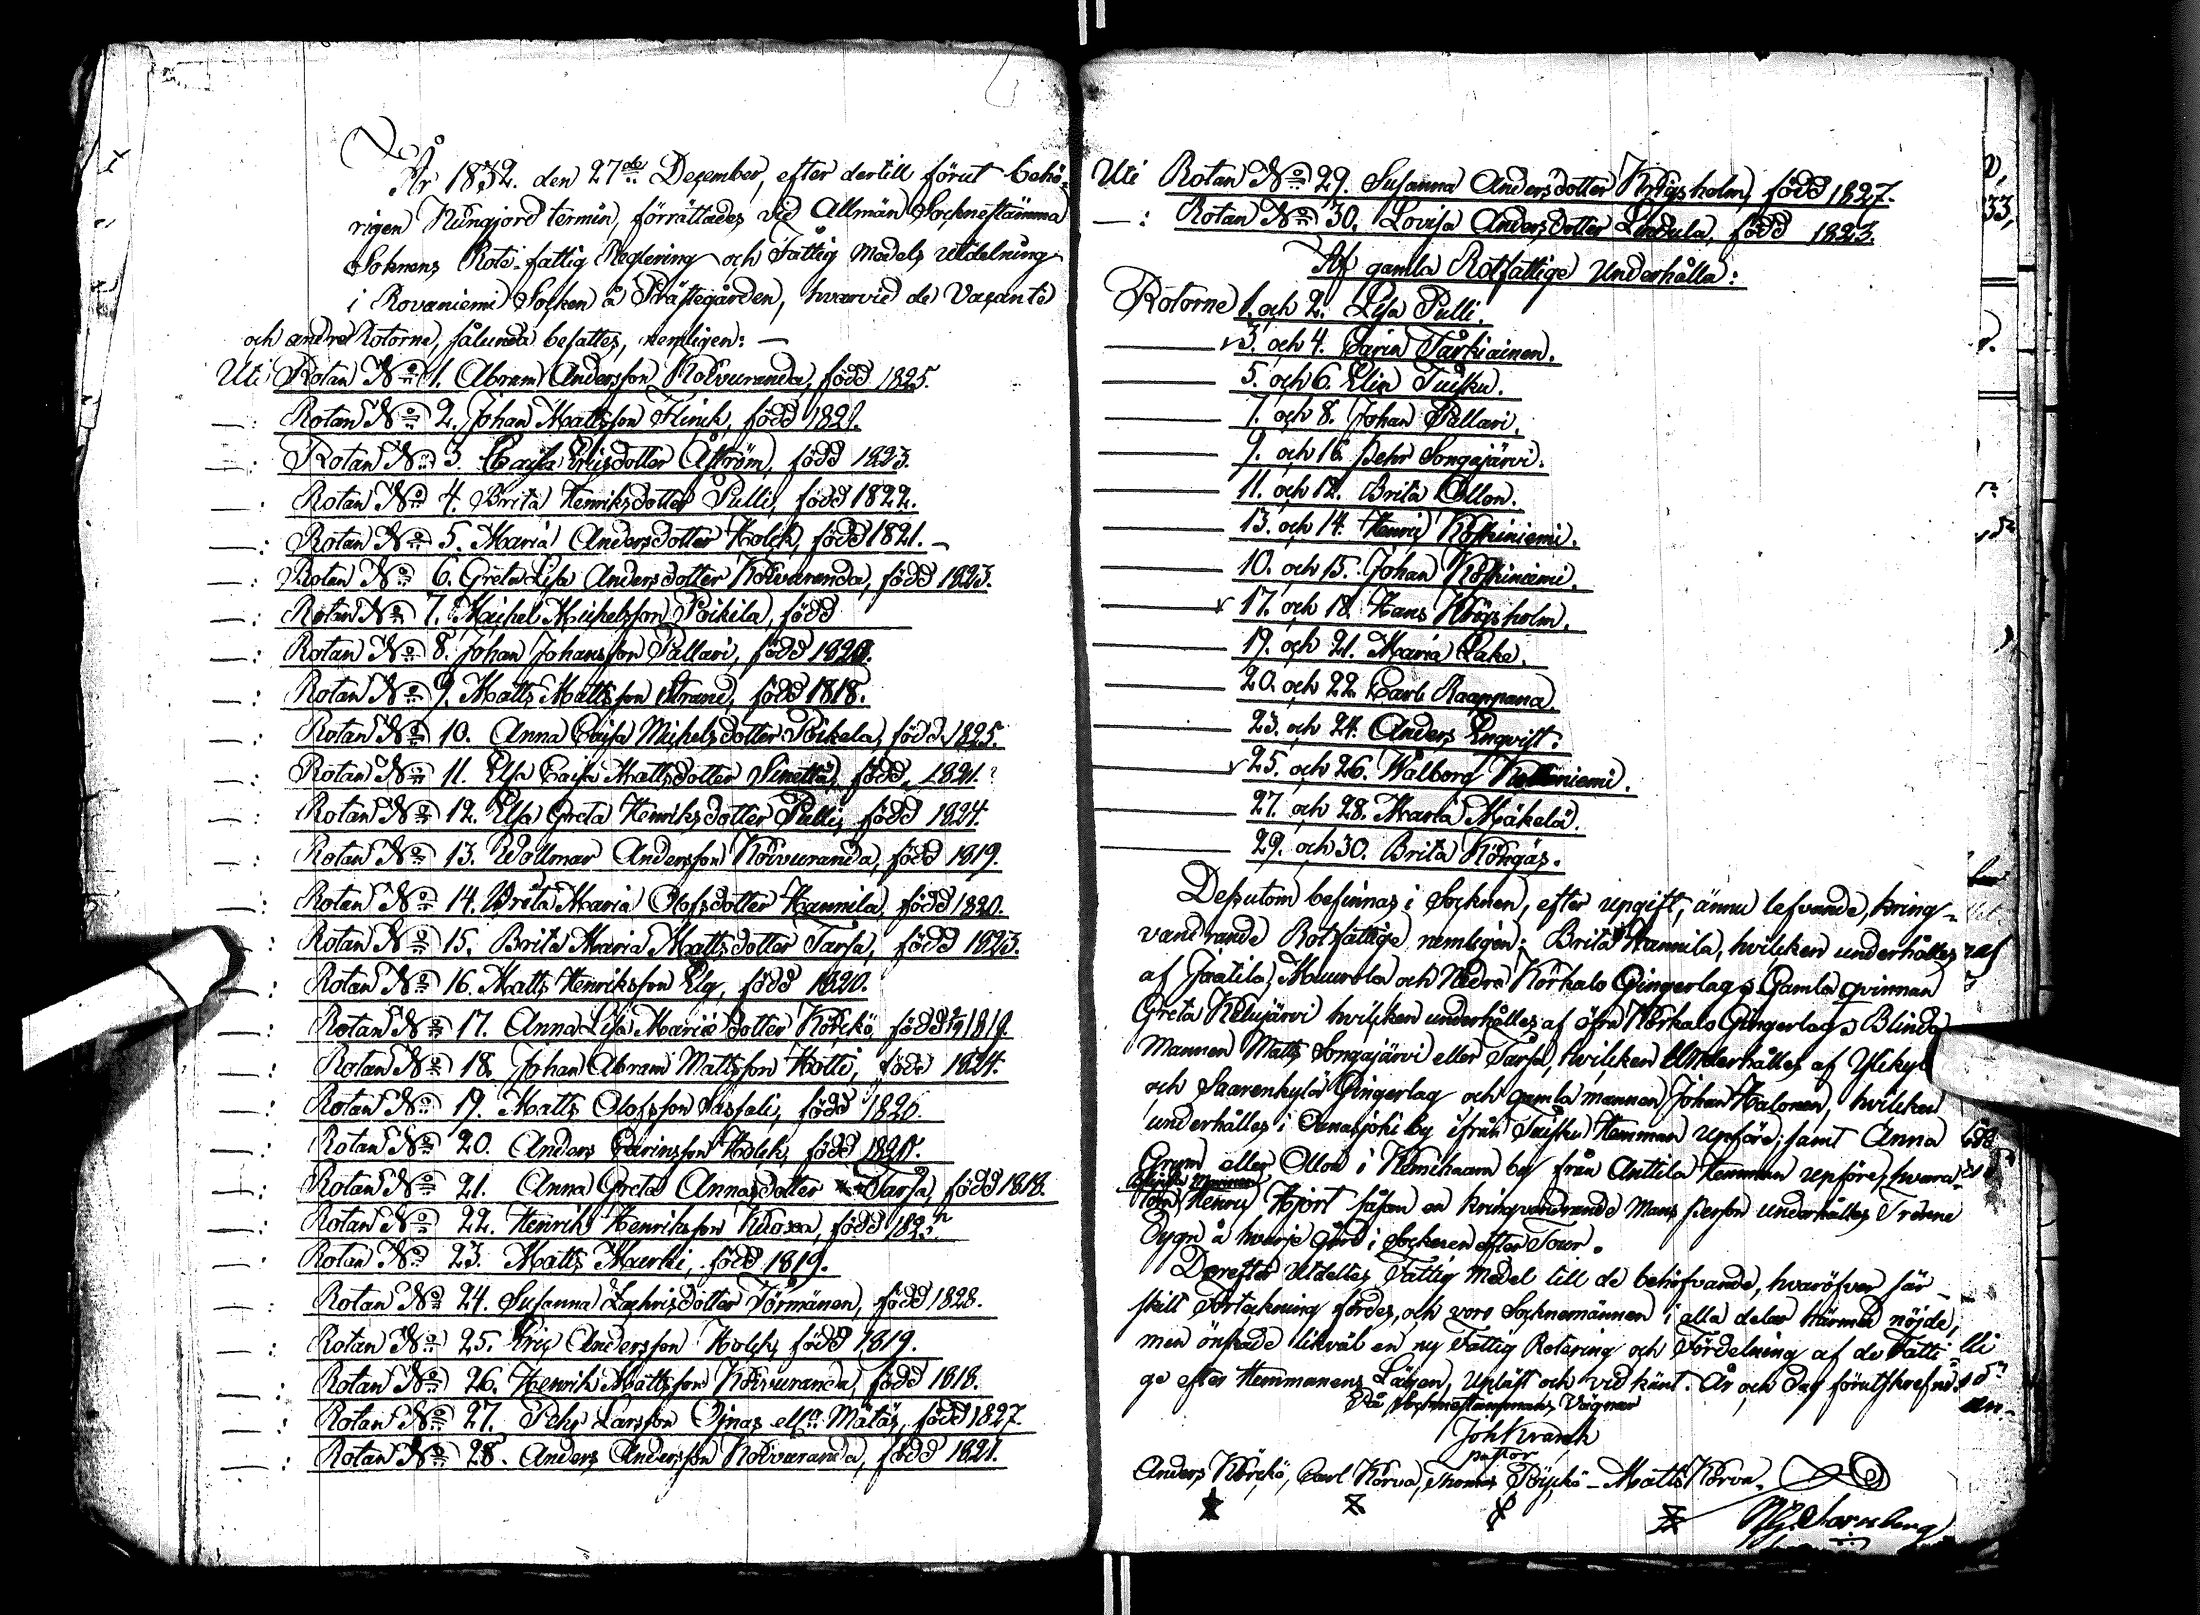 År 1832. den 27de December, efter dertill förut behö-
rigen Kungjord termin, förrättades vid Allmän Socknestämma
Soknens Rote-fattig Reglering och Fattig Medels utdelning
i Rovaniemi Socken å Prästegården, hvarvid de Vacante
och andre Rotorne, sålunda besattes, nemligen: —
Uti Rotan No 1. Abram Andersson Koivuranda, född 1825.
—: Rotan No 2. Johan Mattsson Hinck, född 1821.
—: Rotan No 3. Caisa Ericsdotter Åström, född 1823.
—: Rotan No 4. Brita Henriksdotter Pulli, född 1822.
—: Rotan No 5. Maria Andersdotter Holck, född 1821. —
—: Rotan No 6. Greta Lisa Andersdotter Koivuranda, född 1823.
—: Rotan No 7. Michel Michelsson Poikila, född
—: Rotan No 8. Johan Johansson Pallari, född 1820.
—: Rotan No 9. Matts Mattsson Strand, född 1818.
—: Rotan No 10. Anna Caisa Michelsdotter Poikela, född 1825.
—: Rotan No 11. Elsa Caisa Mattsdotter Sinettä, född 1821.
—: Rotan No 12. Elsa Greta Henriksdotter Pulli, född 1824.
—: Rotan No 13. Wollmar Andersson Koivuranda, född 1819.
—: Rotan No 14. Brita Maria Olofsdotter Hannila, född 1820.
—: Rotan No 15. Brita Maria Mattsdotter Tarsa, född 1823.
—: Rotan No 16. Matts Henriksson Elg, född 1820.
—: Rotan No 17. Anna Lisa Mariæ dotter Körckö, född 1819.
—: Rotan No 18. Johan Abram Mattsson Hotti, född 1824.
—: Rotan No 19. Matts Olofsson Sasfali, född 1820.
—: Rotan No 20. Anders Carinsson Holck, född
—: Rotan No 21. Anna Greta Annasdotter Tarsa, född 1818.
—: Rotan No 22. Henrik Henriksson Kuoxa, född 1823.
—: Rotan No 23. Matts Mawki, född 1819.
—: Rotan No 24. Susanna Zachrisdotter Törmänen, född 1828.
—: Rotan No 25. Eric Andersson Holck, född 1819.
—: Rotan No 26. Henrik Mattsson Koivuranda, född 1818.
—: Rotan No 27. Pehr Larsson Ojnas elr Mätäs, född 1827.
—: Rotan No 28. Anders Andersson Koivuranda, född 1821.
Uti Rotan No 29. Susanna Andersdotter Krigsholm, född 1827.
—: Rotan No 30. Lovisa Andersdotter Lindula, född 1823.
Af gamla Rotfattige Underhålla:
Rotorne 1. och 2. Lisa Pulli.
3. och 4. Carin Tarkiainen.
5. och 6. Elin Tuisku.
7. och 8. Johan Pallari.
9. och 16. Pehr Songajärvi.
11. och 12. Brita Ollon.
13. och 14. Henric Koskiniemi.
10. och 15. Johan Koskiniemi.
17. och 18. Hans Krigsholm.
19. och 21. Maria Lake.
20. och 22. Carl Raappana.
23. och 24. Anders Enqvist.
25. och 26. Walborg
27. och 28. Maria Mäkelä.
29. och 30. Brita Köngäs.
Dessutom befinnas i Socknen, efter upgift, ännu lefvande, kring-
vandrande Rotfattige nemligen: Brita Hannila, hvilcken underhålles
af Jaatila, Muurola och Nedre Korkalo Gingerlag; Gamla qvinnan
Greta Kelujärvi hvilcken underhålles af öfra Korkalo Gingerlag; Blinda
Mannen Matts Songajärvi eller Tarsa, hvilcken Underhålles af Ylikylä
och Saarenkylä Gingerlag och gamla mannen Johan Halonen, hvilcken
underhålles i Ounasjoki by ifrån Tuisku Hemman upföre; samt Anna
Grym eller Ollon i Kemihaara by från Anttila Hemman upföre, hvara-
Henric Hjort såsom en kringvandrande Mans Person underhålles Trenne
Dygn å hvarje gård i Socknen efter Tour.
Derefter Utdeltes Fattig Medel till de behöfvande, hvaröfver sär-
skilt Förteckning fördes, och voro Socknemännen i alla delar härmed nöjde,
men önskade likväl en ny Fattig Rotering och Fördelning af de Fatti-
ge efter Hemmanens Lägen, Upläst och vid känt. År och Dag förutskrefne.
På Socknestämmans Vägnar
Joh Wranck
pastor
Anders Körckö, Carl Körva, Thomas Pöyckö — Matts Korva.